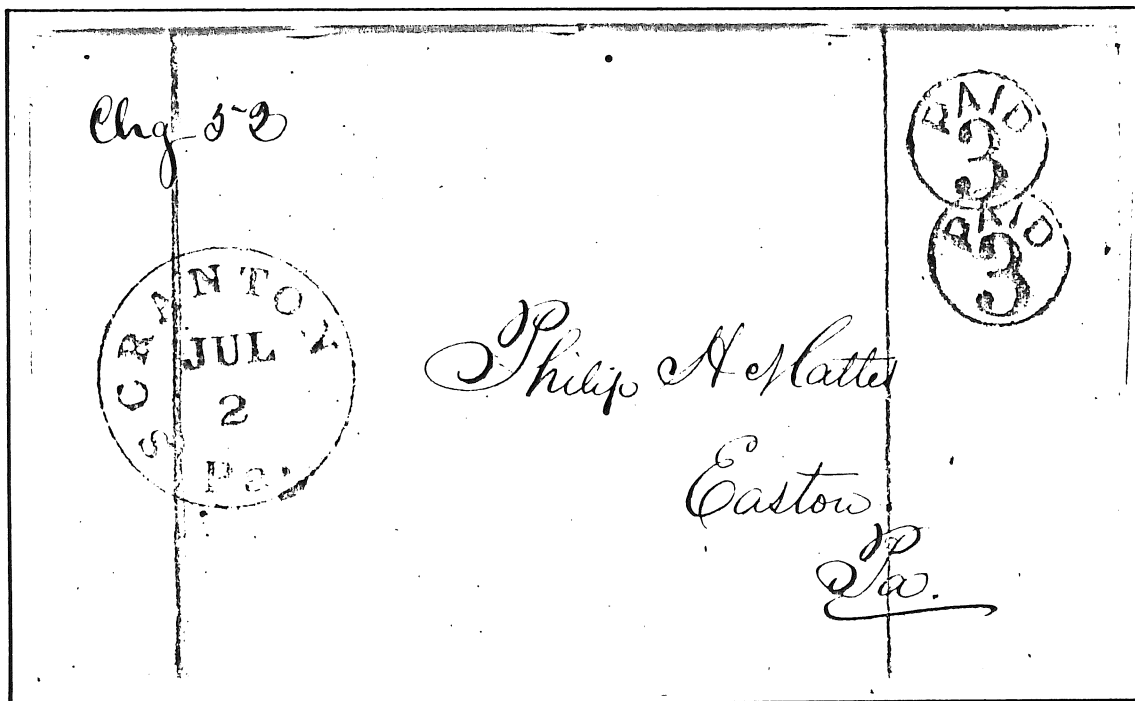 Chg 52
PAID
3
PAID
3
SCRANTON
JUL
2
Pa.
Philip H Mattes
Easton
Pa.